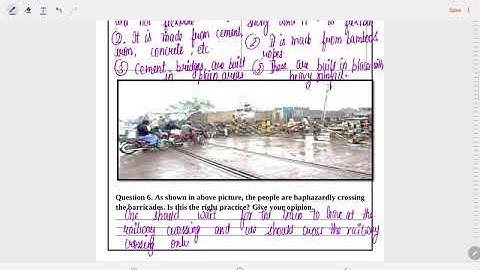 are not flexible
②. It is made from cement,
iron, concrete etc.
③ Cement, bridges, are built
in plain areas
② It is made from bamboos
ropes
③ These are built in places with
heavy rainfall.
Question 6. As shown in above picture, the people are haphazardly crossing
the barricades. Is this the right practice? Give your opinion.
One should wait for the train to leave at the
railway crossing and we should cross the railway
crossing only